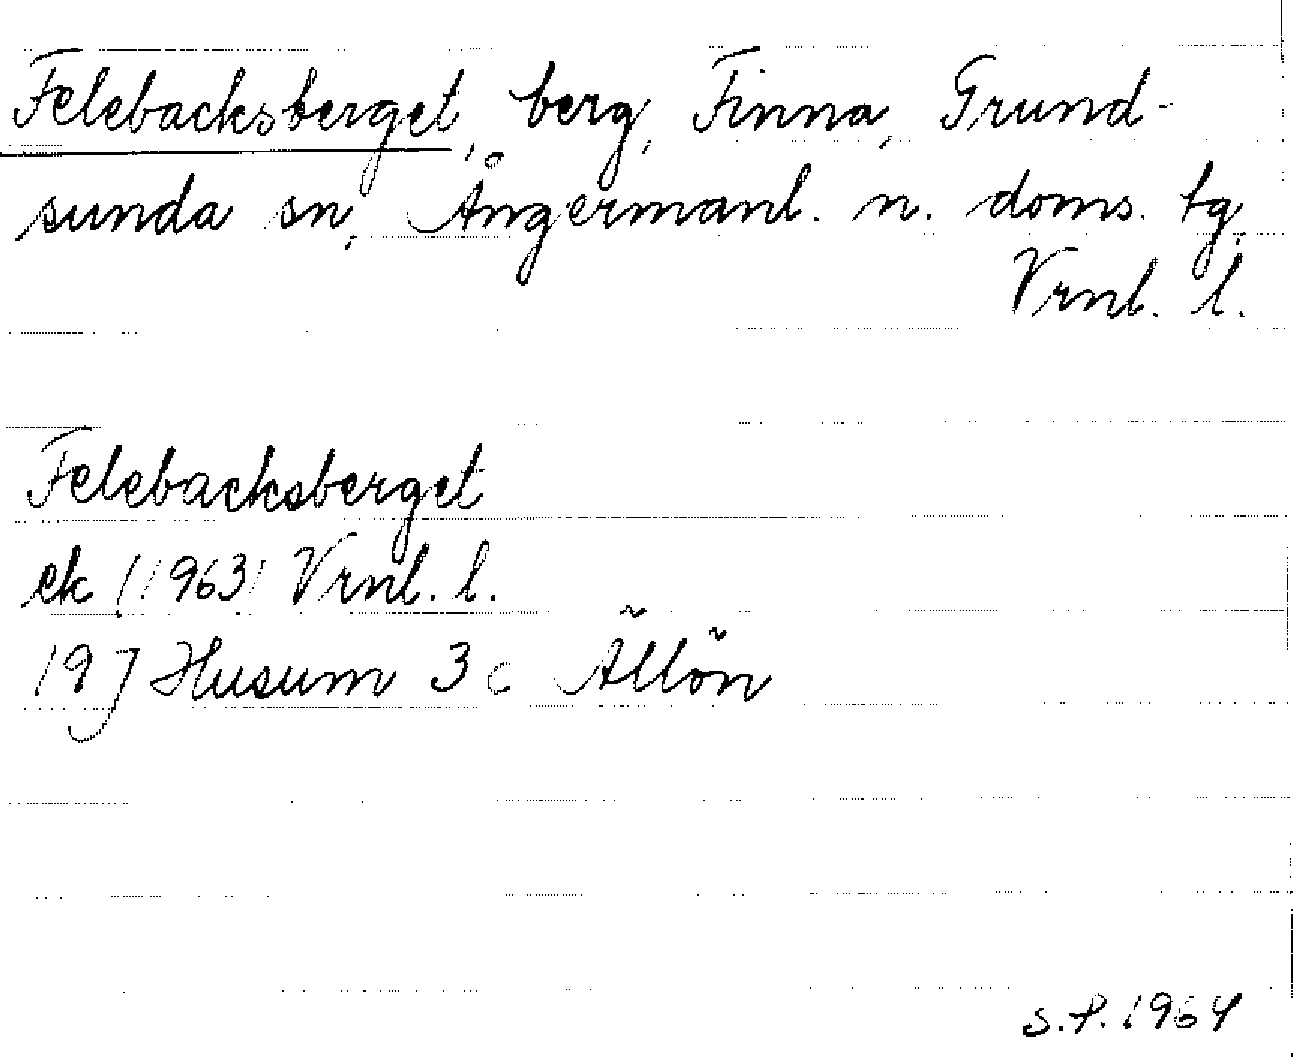 Felebacksberget, berg, Finna, Grund-
sunda sn, Ångermanl. n. doms. tg,
Vrnl. l.
Felebacksberget
ek (1963) Vrnl. l.
19J Husum 3 c Ällön
S.P. 1964